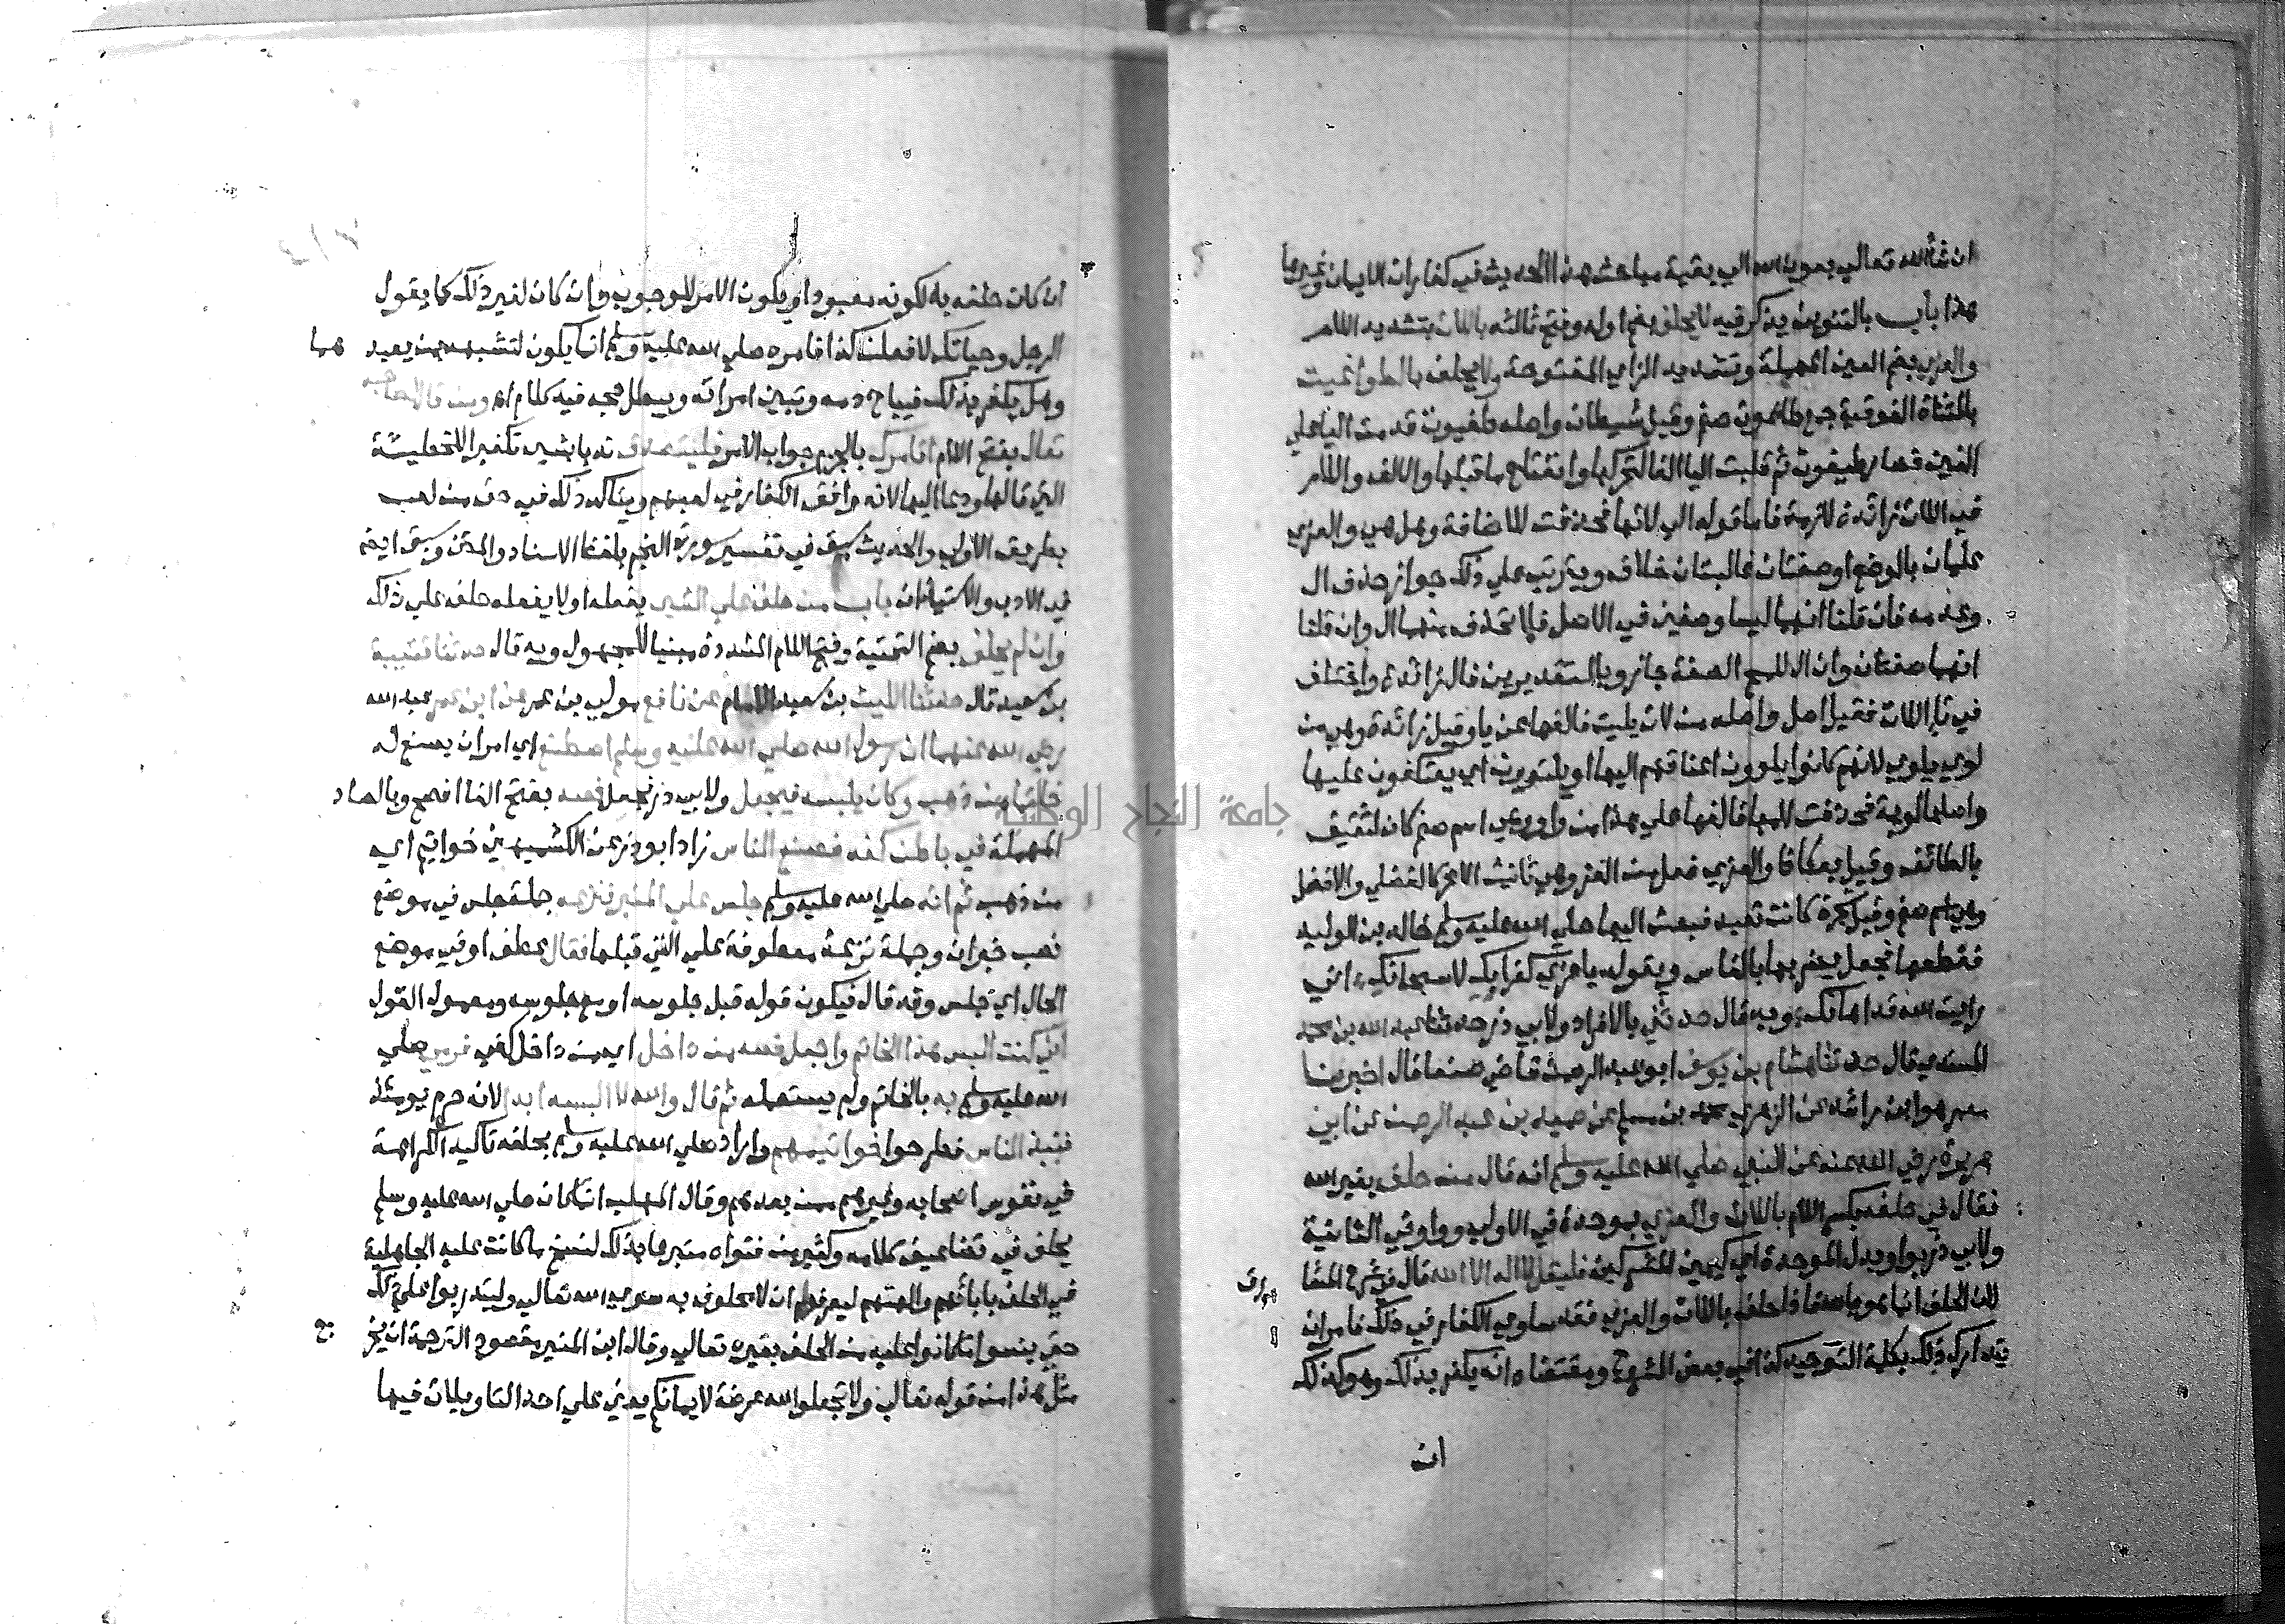 ان شاء الله تعالي بعون الله الي بقية مباحث هذا الحديث في كفارات الايمان وغيرها
هذا باب بالتنوين يذكر فيه لا يحلف بضم اوله وفتح ثالثه باللات بتشديد اللام
والعزي بضم العين المهملة وتشديد الزاي المفتوحة ولا يحلف بالطواغيت
بالمثناة الفوقية جمع طاغوت صنم وقيل شيطان واصله طغيوت قدمت اليا علي
الغين فصار طيغوت ثم قلبت اليا الفا لتحركها وانفتاح ما قبلها والالف واللام
في اللات زائدة لازمة فاما قوله الي لاتها فحذفت للاضافة وهل هي والعزي
علمان بالوضع او صفتان غالبتان خلاف ويترتب علي ذلك جواز حذف ال
وعدمه فان قلنا انهما ليسا وصفين في الاصل فلا تحذف منهما ال وان قلنا
انهما صفتان وان ال للمح الصفة جاز وبالتقديرين فال زائدة واختلف
في تا اللات فقيل اصل واصله من لات يليت فالفها عن يا وقيل زائدة وهي من
لوي يلوي لانهم كانوا يلوون اعناقهم اليها او يلتوون اي يعتكفون عليها
واصلها لوية فحذفت لامها فالفها علي هذا من واو وهي اسم صنم كان لثقيف
بالطائف وقيل بعكاظ والعزي فعلي من العز وهي تانيث الاعز كالفضلي والافضل
وهي اسم صنم وقيل شجرة كانت تعبد فبعث اليها صلي الله عليه وسلم خالد بن الوليد
فقطعها فجعل يضربها بالفاس ويقول يا عزي كفرانك لا سبحانك اني
رايت الله قد اهانك وبه قال حدثني بالافراد ولابي ذر حدثنا عبد الله بن محمد
المسندي قال حدثنا هشام بن يوسف ابو عبد الرحمن قاضي صنعا قال اخبرنا
معمر هو ابن راشد عن الزهري محمد بن مسلم عن حميد بن عبد الرحمن عن ابي
هريرة رضي الله عنه عن النبي صلي الله عليه وسلم انه قال من حلف بغير الله
فقال في حلفه بكسر اللام باللات والعزي بموحدة في الاولي وواو في الثانية
ولابي ذر بواو بدل الموحدة اي كيمين المشركين فليقل لا اله الا الله قال في شرح المشكا
لان الحلف انما هو بالله فاذا حلف باللات والعزي فقد ساوي الكفار في ذلك فامر ان
يتدارك ذلك بكلمة التوحيد كذا في بعض الشروح ومقتضاه انه يكفر بذلك وهو كذلك
ان
ان كان حلفه به لكونه معبودا ويكون الامر للوجوب وان كان لغير ذلك كما يقول
الرجل وحياتك لافعلن كذا فامره صلي الله عليه وسلم انما يكون لتشبهه بمن يعبد هما
وهل يكفر بذلك فيباح دمه وتبين امراته ويبطل حجه فيه كلام ومن قال لصاحبه
تعال بفتح اللام اقامرك بالجزم جواب الامر فليتصدق ندبا بشي تكفيرا للخطيئة
التي قالها ودعا اليها لانه وافق الكفار في لعبهم ويتاكد ذلك في حق من لعب
بطريق الاولي والحديث سبق في تفسير سورة النجم بلفظ الاسناد والمتن وسبق ايضا
في الادب والاستئذان باب من حلف علي الشي يفعله او لا يفعله حلف علي ذلك
وان لم يحلف بضم التحتية وفتح اللام المشددة مبنيا للمجهول وبه قال حدثنا قتيبة
بن سعيد قال حدثنا الليث بن سعد الامام عن نافع مولي بن عمر عن ابن عمر عبد الله
رضي الله عنهما ان رسول الله صلي الله عليه وسلم اصطنع اي امر ان يصنع له
خاتما من ذهب وكان يلبسه فيجعل ولابي ذر فجعل فصه بفتح الفا افصح وبالصاد
المهملة في باطن كفه فصنع الناس زاد ابو ذر عن الكشميهني خواتيم اي
من ذهب ثم انه صلي الله عليه وسلم جلس علي المنبر فنزعه جملة جلس في موضع
نصب خبر ان وجملة نزعه معطوفة علي التي قبلها فقال عطف او في موضع
الحال اي جلس وقد قال فيكون قوله قبل جلوسه او مع جلوسه ومعمول القول
اني كنت البس هذا الخاتم واجعل فصه من داخل اي من داخل كفي فرمي صلي
الله عليه وسلم به بالخاتم ولم يستعمله ثم قال والله لا البسه ابدا لانه حرم يومئذ
فنبذ الناس فطرحوا خواتيمهم واراد صلي الله عليه وسلم بحلفه تاكيد الكراهة
في نفوس اصحابه وغيرهم من بعدهم وقال المهلب انما كان صلي الله عليه وسلم
يحلف في تضاعيف كلامه وكثير من فتواه متبرعا بذلك لنسخ ما كانت عليه الجاهلية
في الحلف بابائهم والهتهم ليعرفهم ان لا محلوف به سوي الله تعالي وليتدربوا علي ذلك
حتي ينسوا ما كانوا عليه من الحلف بغيره تعالي وقال ابن المنير مقصود الترجمة ان يخرج
مثل هذا من قوله تعالي ولا تجعلوا الله عرضة لايمانكم يعني علي احد التاويلات فيها
جامعة النجاح الوطنية